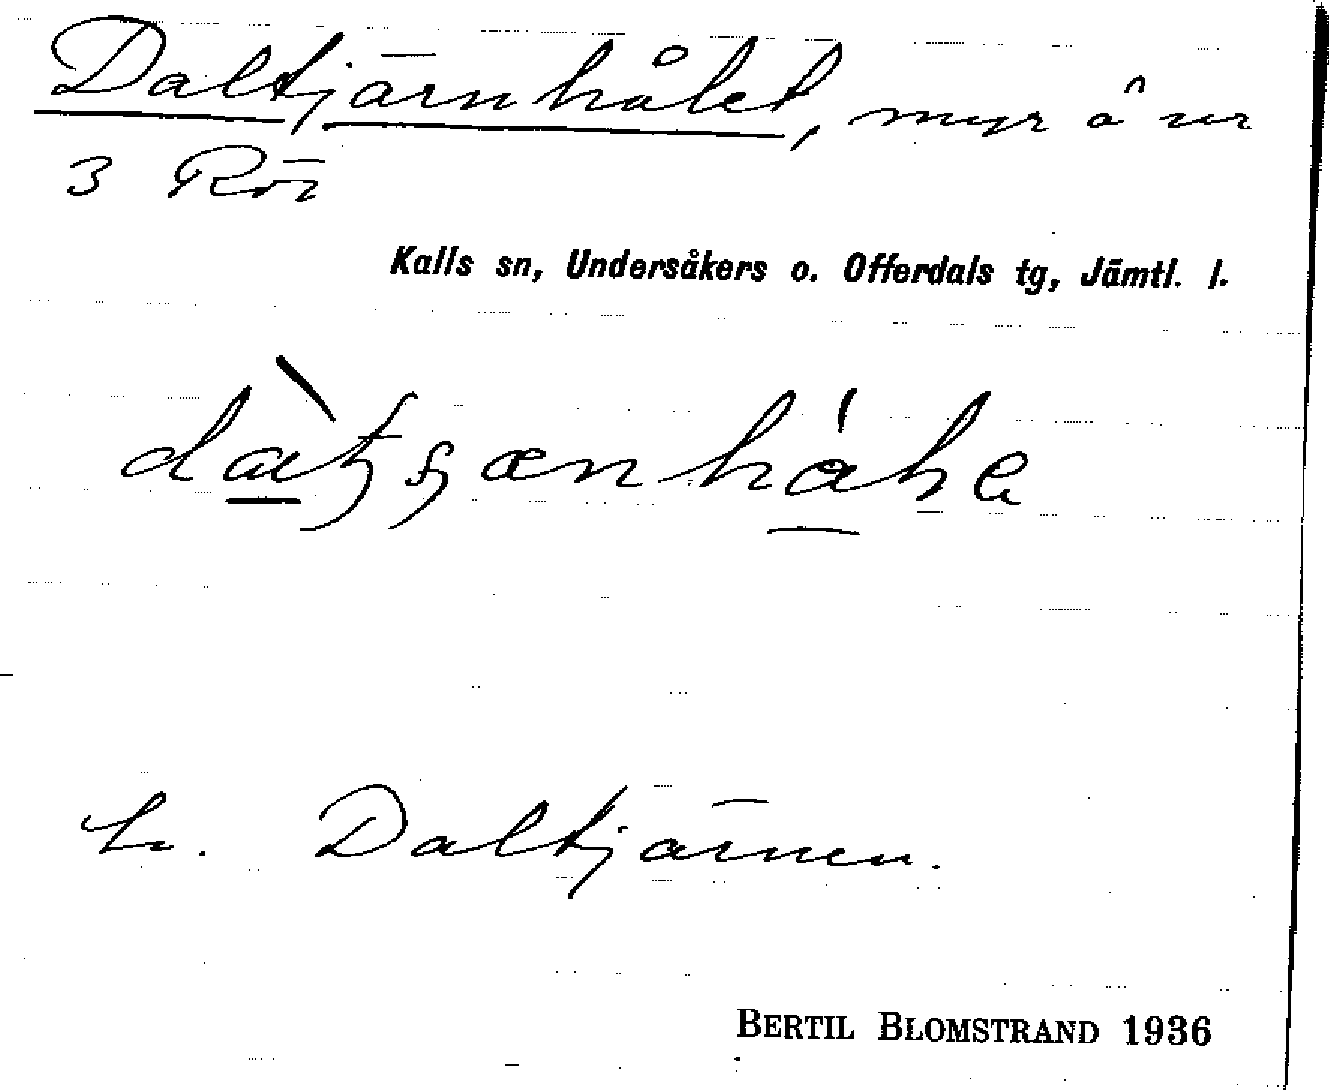 Daltjärnhålet, myr å nr
3 Röi
Kalls sn, Undersåkers o. Offerdals tg, Jämtl. l.
Daltjärnen.
BERTIL BLOMSTRAND 1936